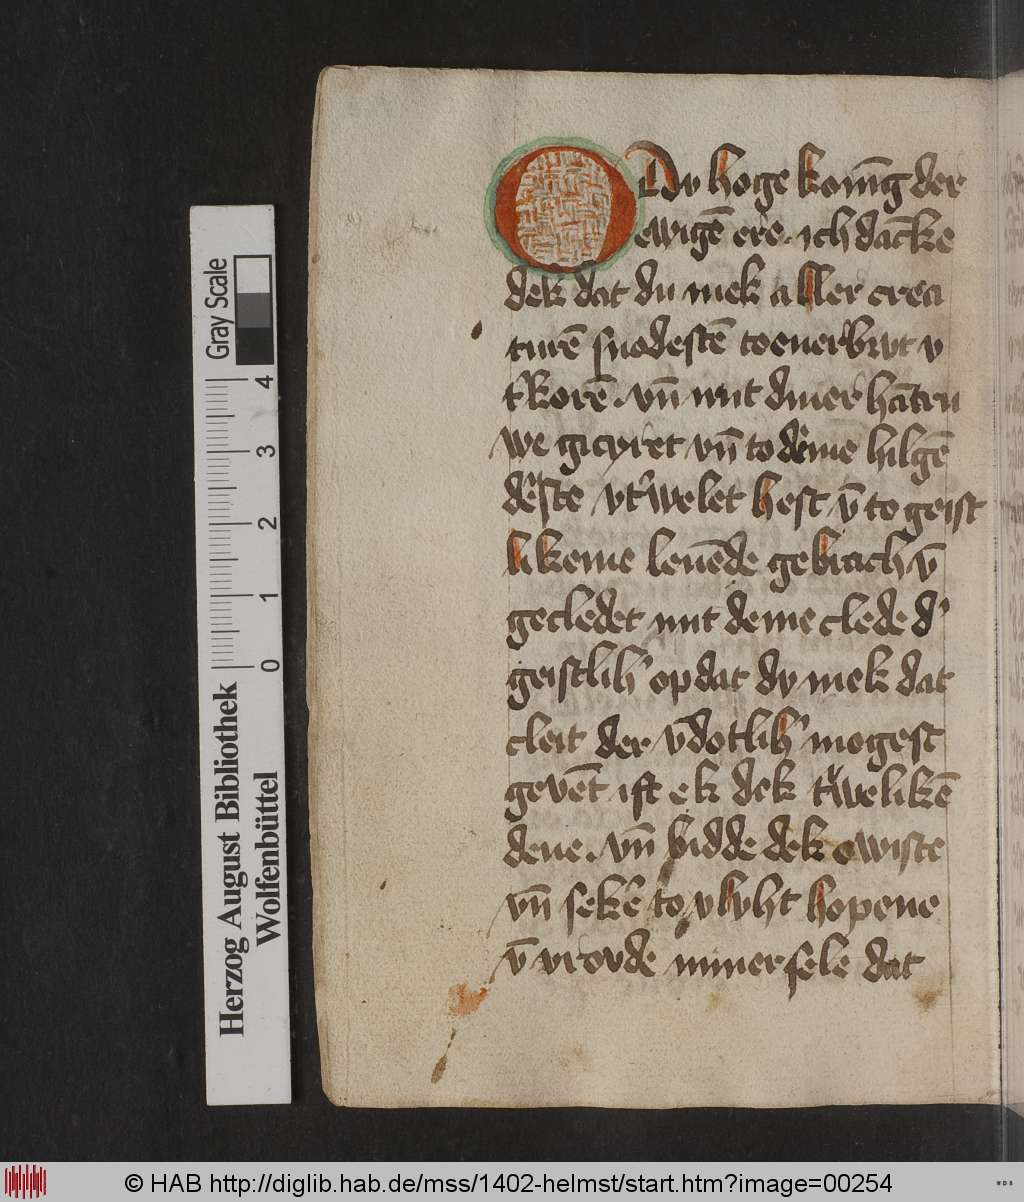 O Du hoge konīg der
ewigē ere. ich dācke
dek dat du mek aller crea
turē snodestē to euer brut v
t'korē. vn̄ mit diner hāttru
we gicyret vn̄ to dēme hilgē
dēste vt'welet hest v̄ to geist
likeme leuēde gebracht v̄
gecledet mit deme clede d'
geistlih' opdat dy mek dat
cleit der v̄dotlih' mogest
gevēt ift ek dek t'weliken
dene. vn̄ bidde dek o wiste
vn̄ sekē to vlvht hopene
v̄ vrovde miner sele dat
Gray Scale
4
3
2
1
0
Herzog August Bibliothek
Wolfenbüttel
© HAB http://diglib.hab.de/mss/1402-helmst/start.htm?image=00254